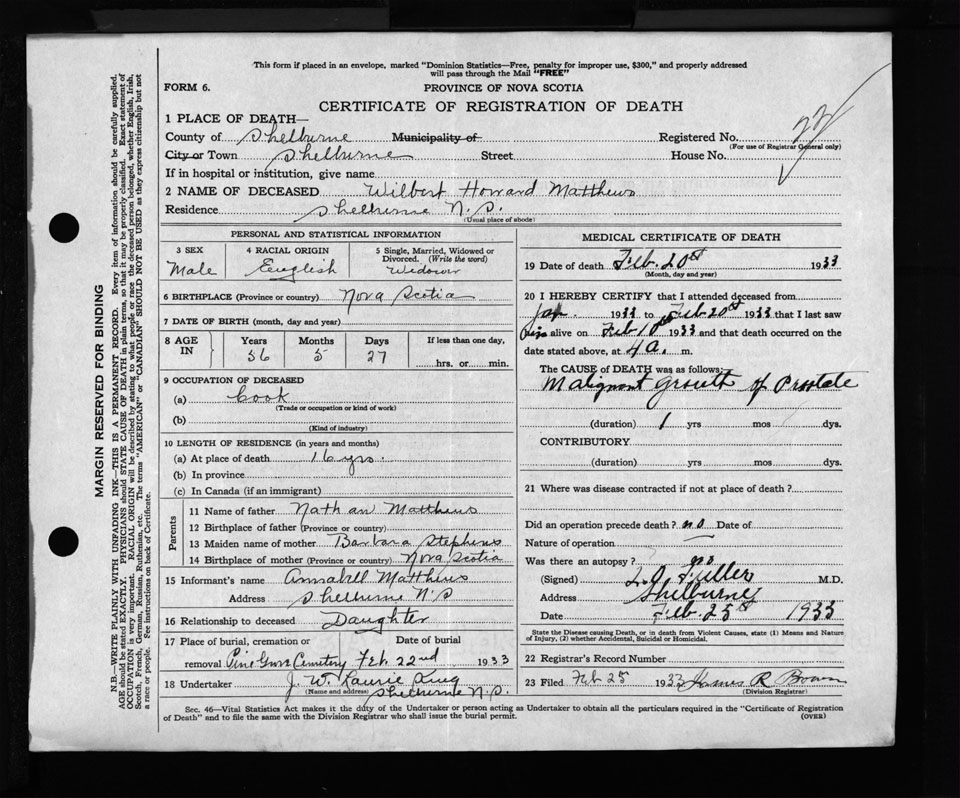 This form if placed in an envelope, marked "Dominion Statistics—Free, penalty for improper use, $300," and properly addressed
will pass through the Mail "FREE"
FORM 6.
PROVINCE OF NOVA SCOTIA
CERTIFICATE OF REGISTRATION OF DEATH
1 PLACE OF DEATH—
County of Shelburne Municipality of Registered No. 22
(For use of Registrar General only)
City or Town Shelburne Street House No.
If in hospital or institution, give name
2 NAME OF DECEASED Wilbert Howard Matthews
Residence Shelburne N.S.
(Usual place of abode)
PERSONAL AND STATISTICAL INFORMATION
3 SEX 4 RACIAL ORIGIN 5 Single, Married, Widowed or
Divorced. (Write the word)
Male English Widower
6 BIRTHPLACE (Province or country) Nova Scotia
7 DATE OF BIRTH (month, day and year)
8 AGE IN Years Months Days If less than one day,
56 5 27 hrs. or min.
9 OCCUPATION OF DECEASED
(a) Cook
(Trade or occupation or kind of work)
(b)
(Kind of industry)
10 LENGTH OF RESIDENCE (in years and months)
(a) At place of death 16 yrs.
(b) In province
(c) In Canada (if an immigrant)
Parents
11 Name of father Nathan Matthews
12 Birthplace of father (Province or country)
13 Maiden name of mother Barbara Stephens
14 Birthplace of mother (Province or country) Nova Scotia
15 Informant's name Annabell Matthews
Address Shelburne N.S
16 Relationship to deceased Daughter
17 Place of burial, cremation or Date of burial
removal Pine Grove Cemetery Feb 22nd 1933
18 Undertaker J. W. Laurie
(Name and address) Shelburne N.S.
MEDICAL CERTIFICATE OF DEATH
19 Date of death Feb. 20th 1933
(Month, day and year)
20 I HEREBY CERTIFY that I attended deceased from
Jan. 1933 to Feb 20th 1933 that I last saw
him alive on Feb 10th 1933 and that death occurred on the
date stated above, at 4 a. m.
The CAUSE of DEATH was as follows:
Malignant Growth of Prostate
(duration) 1 yrs mos dys.
CONTRIBUTORY
(duration) yrs mos dys.
21 Where was disease contracted if not at place of death?
Did an operation precede death? no Date of
Nature of operation
Was there an autopsy? no
(Signed) L.O. Fuller M.D.
Address Shelburne
Date Feb. 25th 1933
State the Disease causing Death, or in death from Violent Causes, state (1) Means and Nature
of Injury, (2) whether Accidental, Suicidal or Homicidal.
22 Registrar's Record Number
23 Filed Feb 25 1933 James R Bower
(Division Registrar)
Sec. 46—Vital Statistics Act makes it the duty of the Undertaker or person acting as Undertaker to obtain all the particulars required in the "Certificate of Registration
of Death" and to file the same with the Division Registrar who shall issue the burial permit. (OVER)
MARGIN RESERVED FOR BINDING
N.B.—WRITE PLAINLY WITH UNFADING INK—THIS IS A PERMANENT RECORD. Every item of information should be carefully supplied.
AGE should be stated EXACTLY. PHYSICIANS should STATE CAUSE OF DEATH in plain terms, so that it may be properly classified. Exact statement of
OCCUPATION is very important. RACIAL ORIGIN will be described by stating to what people or race the deceased person belonged, whether English, Irish,
Scotch, French, German, Russian, Ruthenian, etc. The terms "AMERICAN" or "CANADIAN" SHOULD NOT BE USED as they express citizenship but not
a race or people. See instructions on back of Certificate.